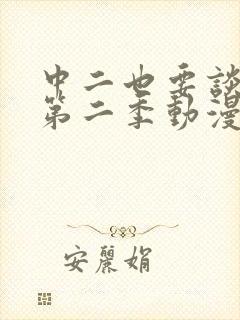 中二也要談
第二季動漫
安麗娟